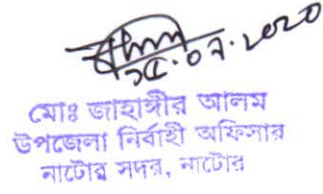 ১৫.০৭.২০২০
মোঃ জাহাঙ্গীর আলম
উপজেলা নির্বাহী অফিসার
নাটোর সদর, নাটোর